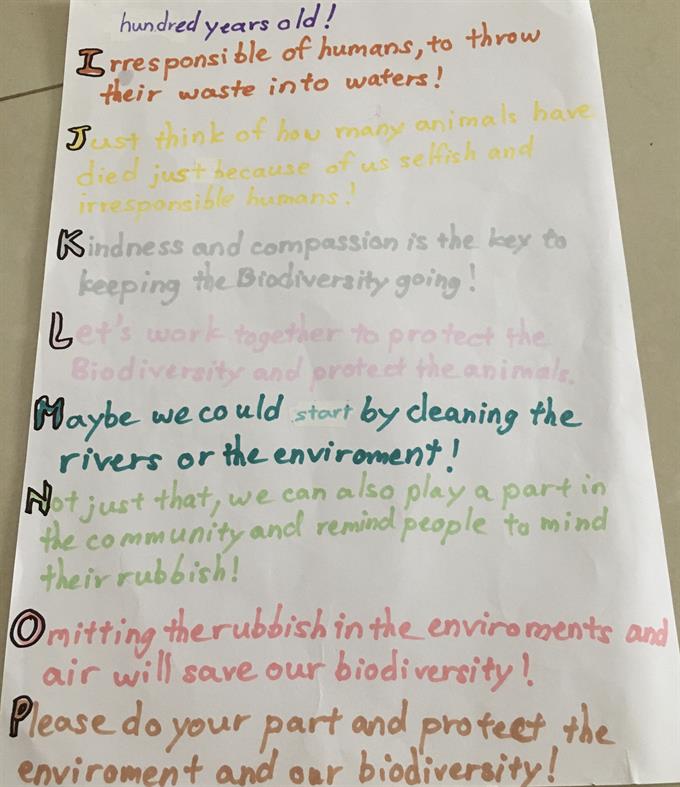 hundred years old!
Irresponsible of humans, to throw
their waste into waters!
Just think of how many animals have
died just because of us selfish and
irresponsible humans!
Kindness and compassion is the key to
keeping the Biodiversity going!
Let's work together to protect the
Biodiversity and protect the animals.
Maybe we could start by cleaning the
rivers or the enviroment!
Not just that, we can also play a part in
the community and remind people to mind
their rubbish!
Omitting the rubbish in the enviroments and
air will save our biodiversity!
Please do your part and protect the
enviroment and our biodiversity!